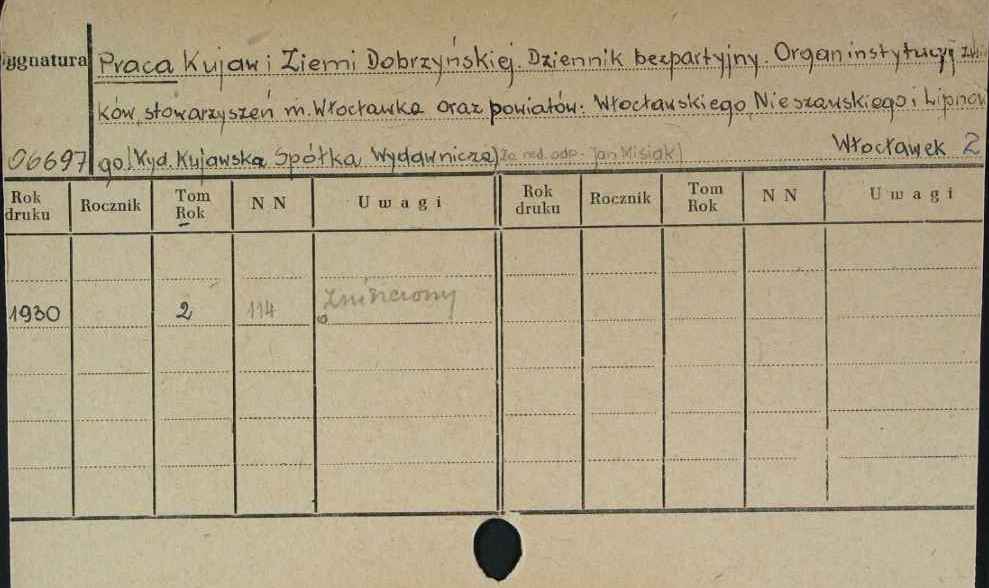 Sygnatura
Praca Kujaw i Ziemi Dobrzyńskiej. Dziennik bezpartyjny. Organ instytucyj
ków, stowarzyszeń m. Włocławka oraz powiatów: Włocławskiego, Nieszawskiego i Lipnow
06697 go. (Wyd. Kujawska Spółka Wydawnicza) Za red. odp. Jan Misiak) Włocławek 2
Rok druku Rocznik Tom Rok N N Uwagi Rok druku Rocznik Tom Rok N N Uwagi
1930 2 114 zniszczony